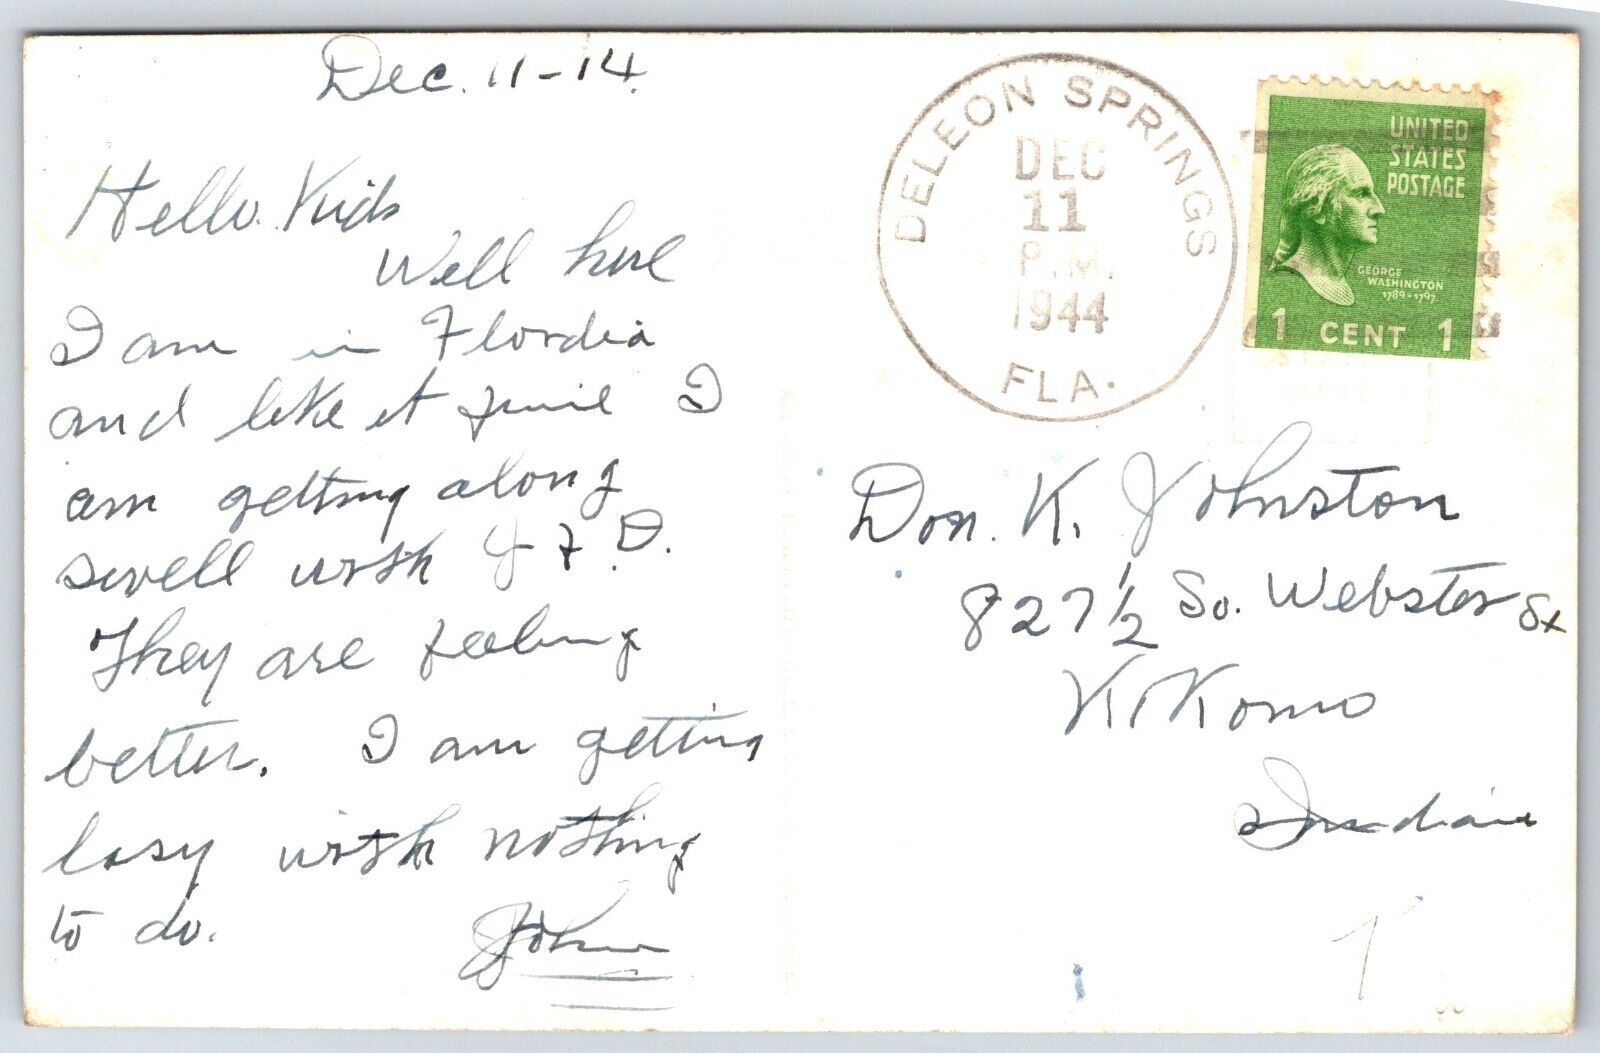 Dec. 11-14.
Hello. Kids
Well here
I am in Flordia
and like it fine I
am getting along
swell with J + D.
They are feeling
better. I am getting
lasy with nothing
to do.
John
DELEON SPRINGS
DEC
11
P.M.
1944
FLA.
UNITED
STATES
POSTAGE
GEORGE
WASHINGTON
1789-1797
1 CENT 1
Don. K. Johnston
827 1/2 So. Webster St
KoKomo
Indiana